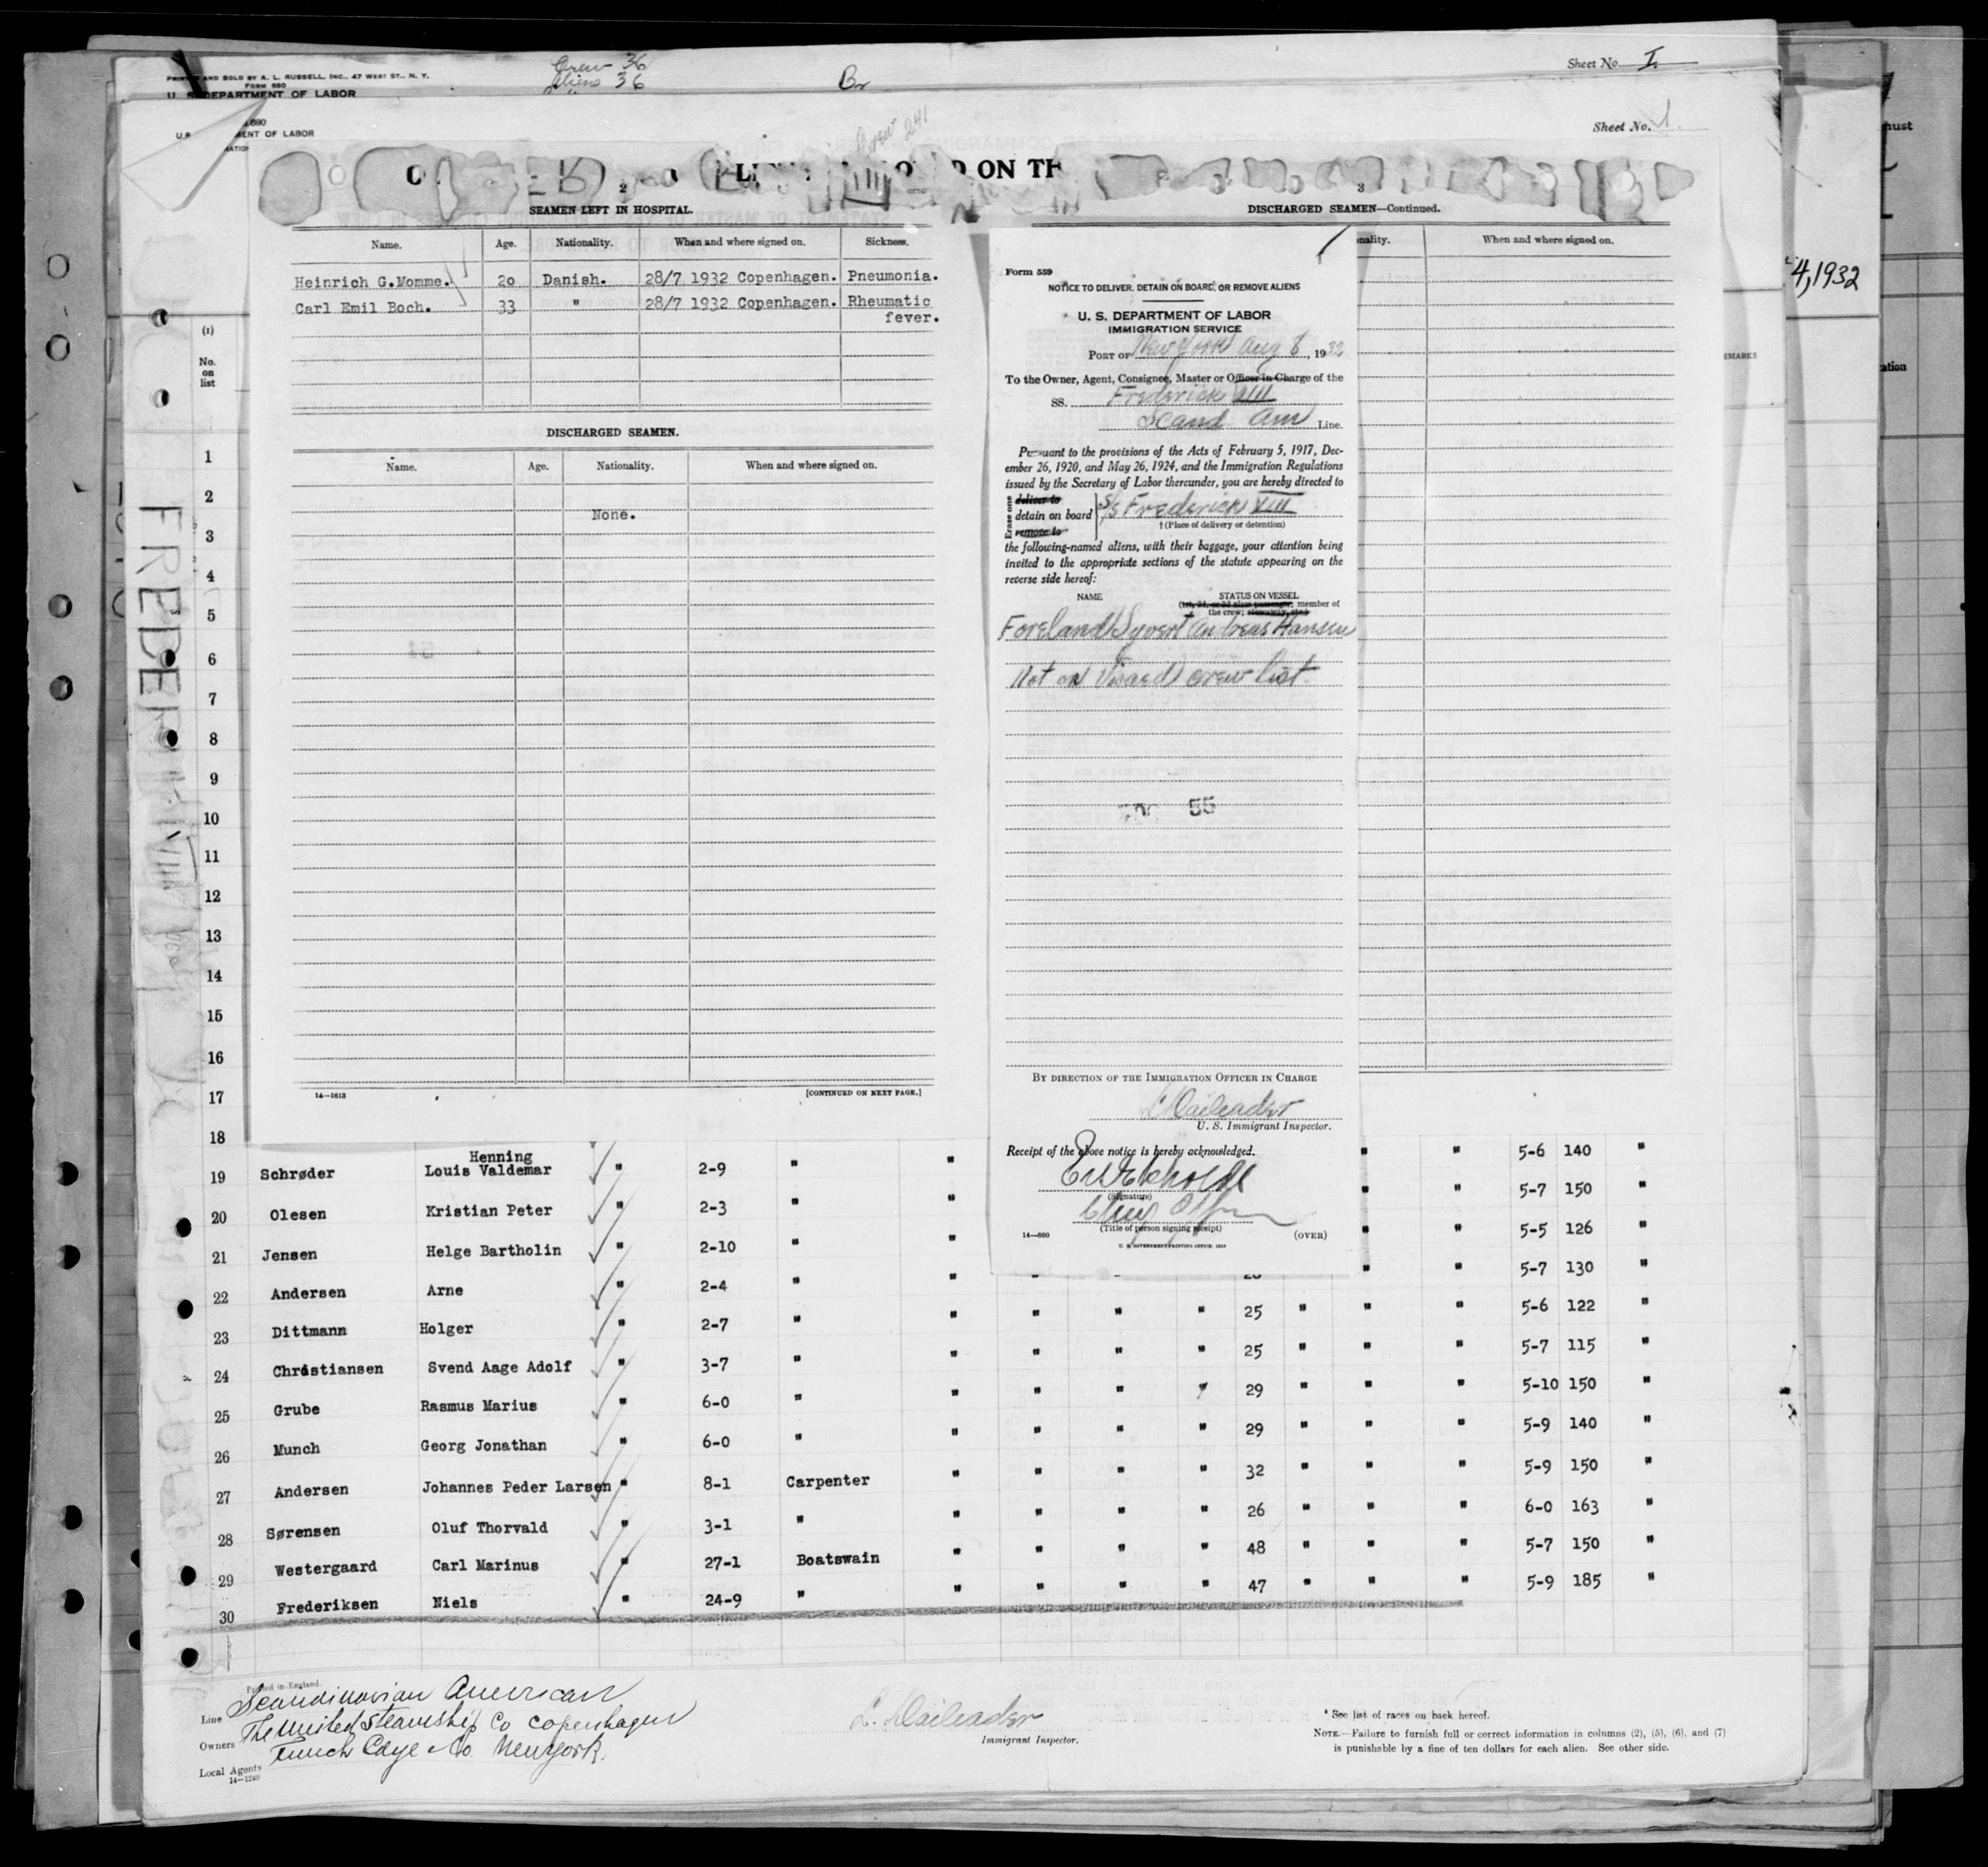 Crew 36
Aliens 36
Sheet No. I.
PRINTED AND SOLD BY A. L. RUSSELL, INC., 47 WEST ST., N. Y.
FORM 680
U. S. DEPARTMENT OF LABOR
Crew 241
Sheet No. 1
ON TH
2
SEAMEN LEFT IN HOSPITAL.
Name. Age. Nationality. When and where signed on. Sickness.
Heinrich G.Momme. 20 Danish. 28/7 1932 Copenhagen. Pneumonia.
Carl Emil Boch. 33 " 28/7 1932 Copenhagen. Rheumatic
fever.
DISCHARGED SEAMEN.
Name. Age. Nationality. When and where signed on.
None.
14—1613 [CONTINUED ON NEXT PAGE.]
3
DISCHARGED SEAMEN—Continued.
nality. When and where signed on.
4, 1932
Form 559
NOTICE TO DELIVER, DETAIN ON BOARD, OR REMOVE ALIENS
U. S. DEPARTMENT OF LABOR
IMMIGRATION SERVICE
PORT OF New York Aug 8, 1932
To the Owner, Agent, Consignee, Master or Officer in Charge of the
SS. Frederick VIII
Scand Am Line.
Pursuant to the provisions of the Acts of February 5, 1917, Dec-
ember 26, 1920, and May 26, 1924, and the Immigration Regulations
issued by the Secretary of Labor thereunder, you are hereby directed to
Erase one
deliver to
detain on board S/S Frederick VIII
remove to
† (Place of delivery or detention)
the following-named aliens, with their baggage, your attention being
invited to the appropriate sections of the statute appearing on the
reverse side hereof:
NAME STATUS ON VESSEL
(1st, 2d, or 3d class passenger; member of
the crew; stowaway, etc.)
Foreland Syvert Andreas Hansen
Not on Visaed crew list
55
BY DIRECTION OF THE IMMIGRATION OFFICER IN CHARGE
U. S. Immigrant Inspector.
Receipt of the above notice is hereby acknowledged.
(Signature)
(Title of person signing receipt)
14—660 (OVER)
U. S. GOVERNMENT PRINTING OFFICE: 1930
FREDERIK VIII
(1)
No.
on
list
1
2
3
4
5
6
7
8
9
10
11
12
13
14
15
16
17
18
19 Schrøder Henning
Louis Valdemar " 2-9 " " " " 5-6 140 "
20 Olesen Kristian Peter " 2-3 " " " " 5-7 150 "
21 Jensen Helge Bartholin " 2-10 " " " " 5-5 126 "
22 Andersen Arne " 2-4 " " " " 5-7 130 "
23 Dittmann Holger " 2-7 " " " " " 25 " " " 5-6 122 "
24 Christiansen Svend Aage Adolf " 3-7 " " " " " 25 " " " 5-7 115 "
25 Grube Rasmus Marius " 6-0 " " " " " 29 " " " 5-10 150 "
26 Munch Georg Jonathan " 6-0 " " " " " 29 " " " 5-9 140 "
27 Andersen Johannes Peder Larsen " 8-1 Carpenter " " " " 32 " " " 5-9 150 "
28 Sørensen Oluf Thorvald " 3-1 " " " " " 26 " " " 6-0 163 "
29 Westergaard Carl Marinus " 27-1 Boatswain " " " " 48 " " " 5-7 150 "
30 Frederiksen Niels " 24-9 " " " " " 47 " " " 5-9 185 "
Printed in England.
Line Scandinavian American
Owners The United Steamship Co Copenhagen
Local Agents Funch Edye & Co. New York.
14—1240
Immigrant Inspector.
* See list of races on back hereof.
NOTE.—Failure to furnish full or correct information in columns (2), (5), (6), and (7)
is punishable by a fine of ten dollars for each alien. See other side.